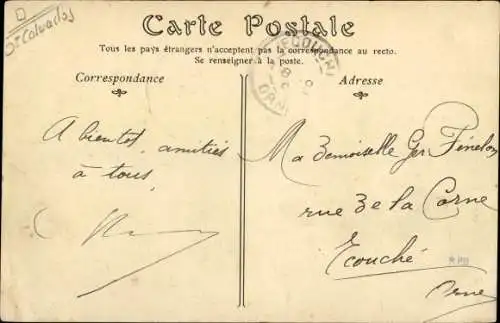 D
Calvados
Carte Postale
Tous les pays étrangers n'acceptent pas la correspondance au recto.
Se renseigner à la poste.
Correspondance
Adresse
A bientot, amitiés
à tous,
Mademoiselle Ger Fénelon
rue de la Corne
Ecouché
Orne